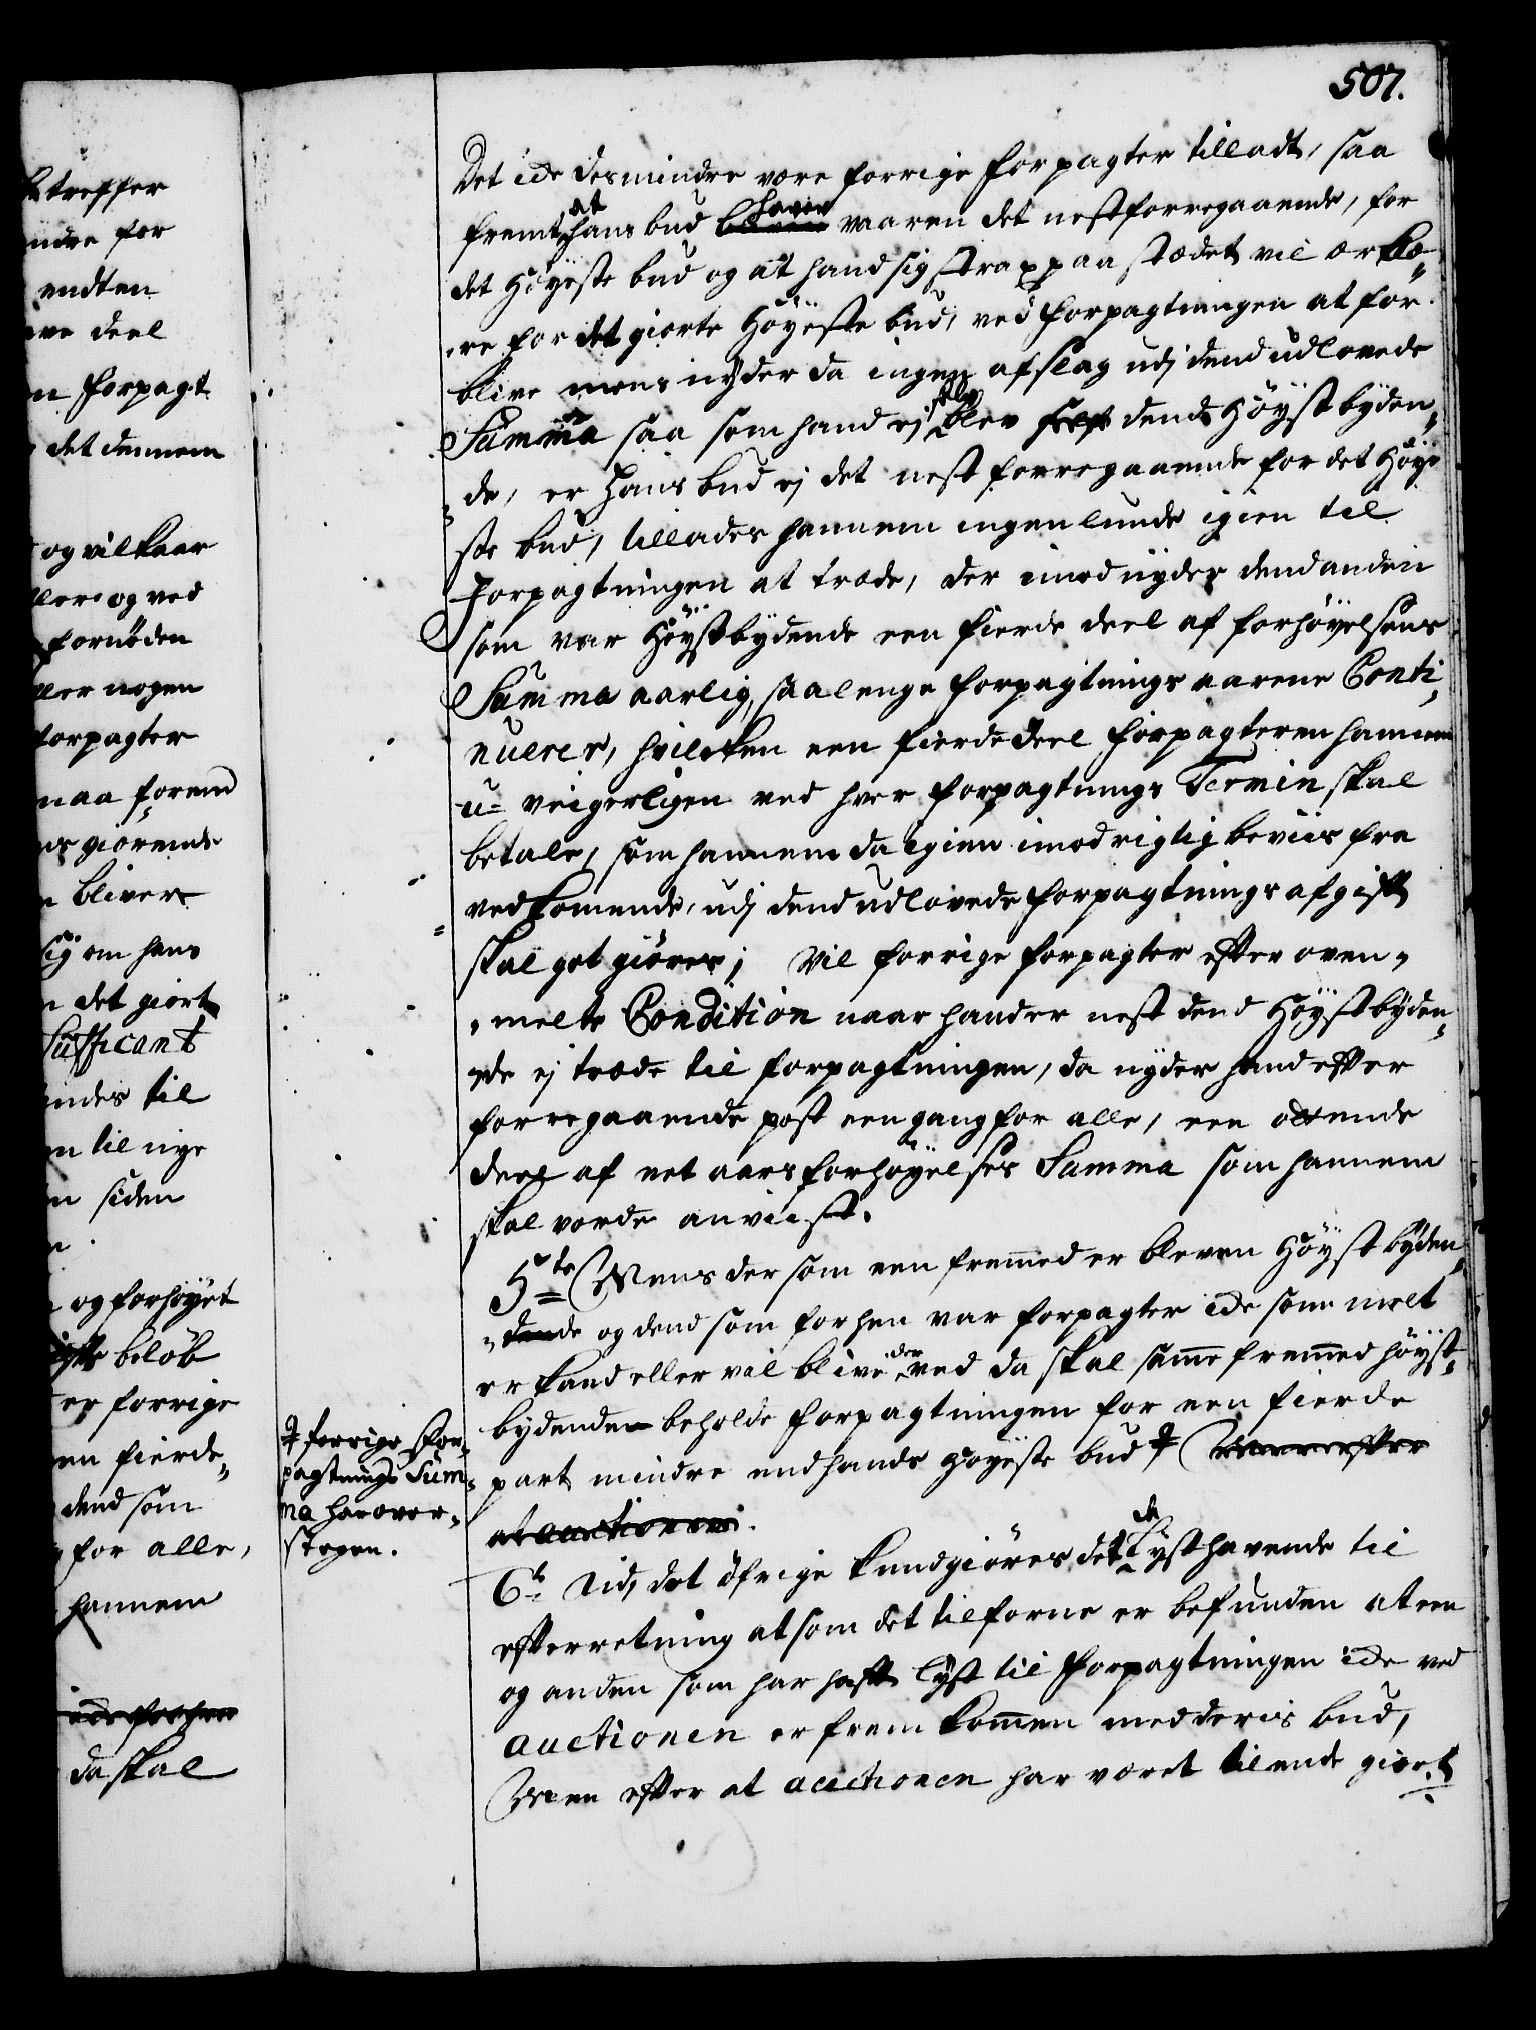 507.
Det icke desmindre være forrige forpagter tilladt, saa
fremt at hans bud haver vaaren det nestforregaaende, for
det Höyeste bud og at hand sig strax paa stædet vil ærklæ„
„re for det giorte Höyeste bud, ved forpagtningen at for„
blive mens nyder da ingen afslag udj dend udlovede
Summa saa som hand ej self blev self dend Höystbyden„
„de, er Hans bud ej det nest forregaaende for det Höye
ste bud, tillades hannem ingenlunde igien til
forpagtningen at træde, der imod nyder dend anden
som var Höystbydende een fierde deel af forhöyelsens
Summa aarlig, saalenge forpagtnings aarene Conti„
nuerer, hvilcken een fierdedeel forpagteren hannem
u= veigerligen ved hver forpagtnings Termin skal
betale, som hannem da igien imod rigtig beviis fra
vedkomende, udj dend udlovede forpagtnings afgift
skal got giöres; Vil forrige forpagter efter oven„
„melte Condition naar hand er nest dend Höystbyden„
„de ej træde til forpagtningen, da nyder hand efter
forregaaende post een gang for alle, een ottende
deel af eet aars forhöyelses Summa som hannem
skal vorde anviist.
5te Mens der som een fremmed er bleven Höyst byden„
„dende og dend som forhen var forpagter icke som melt
er kand eller vil blive der ved da skal samme fremmed höyst„
bydende beholde forpagtningen for een fierde
part mindre end hands Höyeste bud ‡
at auctionen.
‡ forrige for„
pagtnings Sum„
ma har over„
stegen.
6te Udj det öfrige kundgiöres det de Lysthavende til
efterretning at som det tilforne er befunden at een
og anden som har haft lyst til forpagtningen icke ved
auctionen er frem kommen med deris bud,
Men efter at auctionen har været til ende giort
treffer
endten
deel
forpagt
det dennem
og vilkaar
og ved
fornöden
nogen
forpagter
giörende
bliver
sig om hans
det giort
Sufficant
til
til nye
siden
og forhöyet
belöb
er forrige
fierde„
dend som
for alle,
hannem
da skal